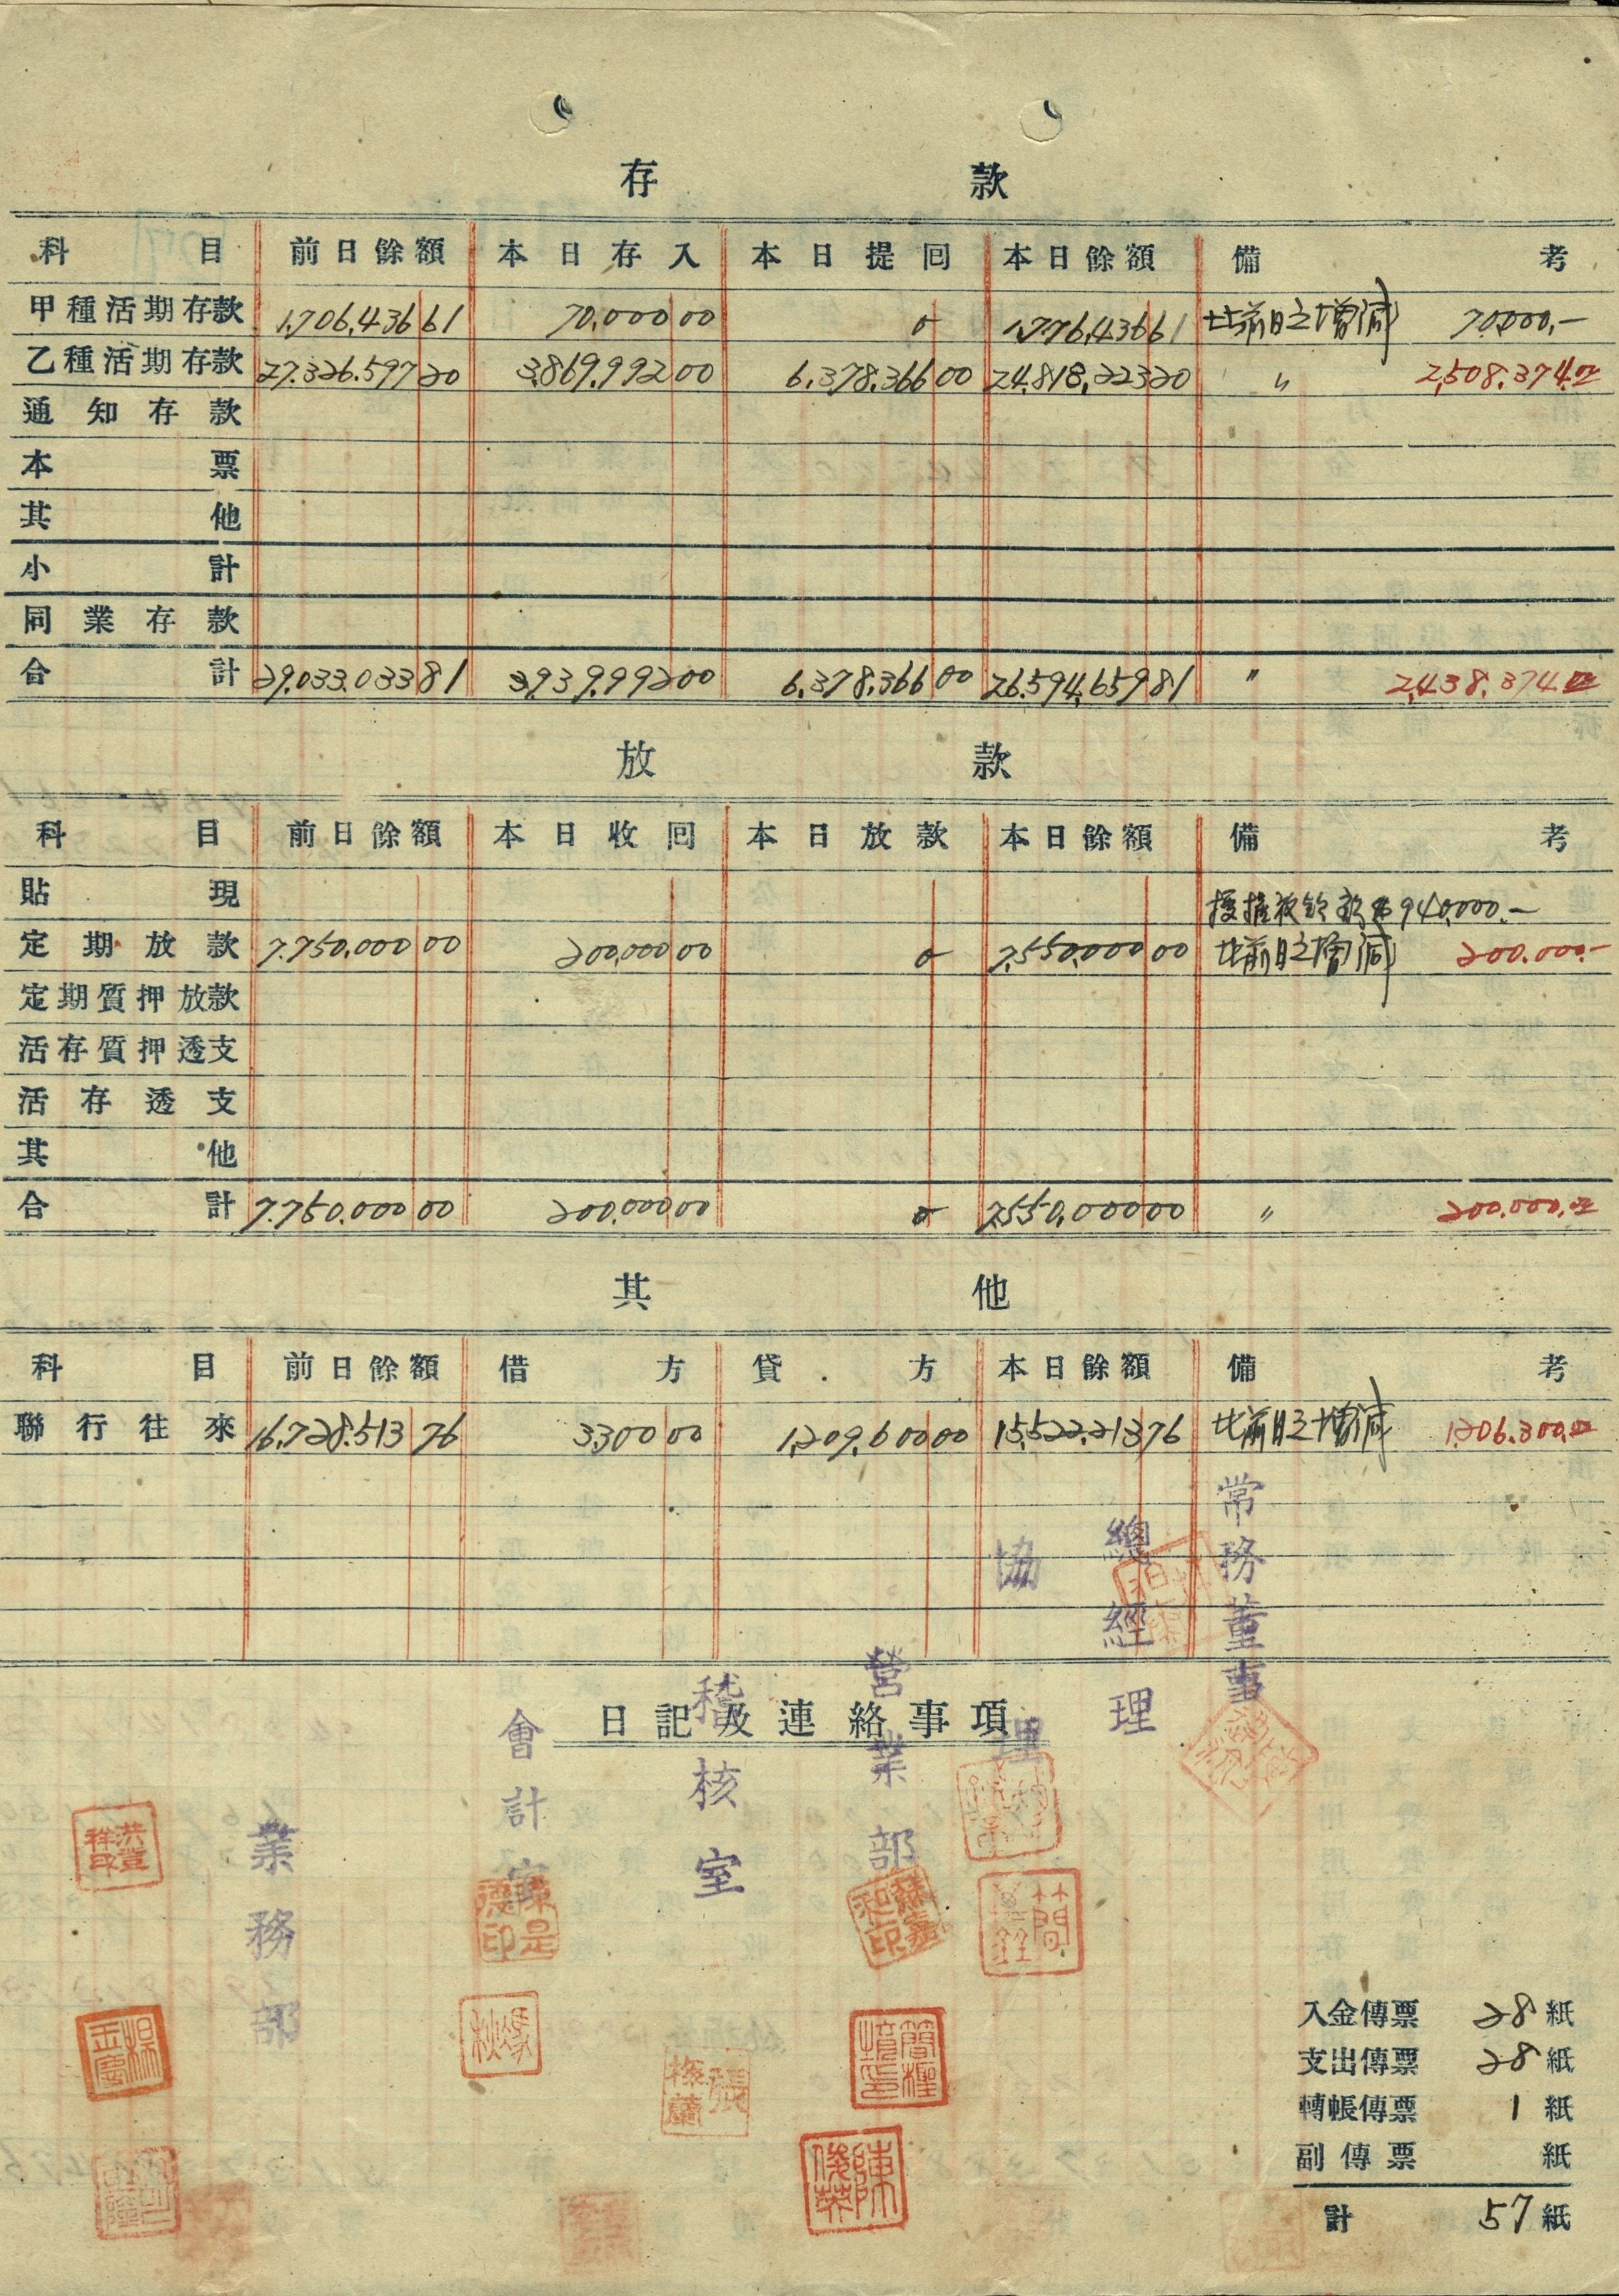 存款
科目 前日餘額 本日存入 本日提回 本日餘額 備考
甲種活期存款 1,706,436 61 70,000 00 0 1,776,436 61 比前日之增減 70,000.—
乙種活期存款 27,326,597 20 3,869,992 00 6,378,366 00 24,818,223 20 〃 2,508,374.00
通知存款
本票
其他
小計
同業存款
合計 29,033,033 81 3,939,992 00 6,378,366 00 26,594,659 81 〃 2,438,374.00
放款
科目 前日餘額 本日收回 本日放款 本日餘額 備考
貼現 940,000.—
定期放款 7,750,000 00 200,000 00 0 7,550,000 00 比前日之增減 200,000.—
定期質押放款
活存質押透支
活存透支
其他
合計 7,750,000 00 200,000 00 0 7,550,000 00 〃 200,000.00
其他
科目 前日餘額 借方 貸方 本日餘額 備考
聯行往來 16,728,513 76 3,300 00 1,209,600 00 15,522,213 76 比前日之增減 1,206,300.00
日記及連絡事項
常務董事
總經理
協理
營業部
稽核室
會計室
業務部
洪登祥印
楊玉慶
陳是
印
馮秋
張梅蘭
蘇嘉和印
簡
陳俊
入金傳票 28 紙
支出傳票 28 紙
轉帳傳票 1 紙
副傳票 紙
計 57 紙